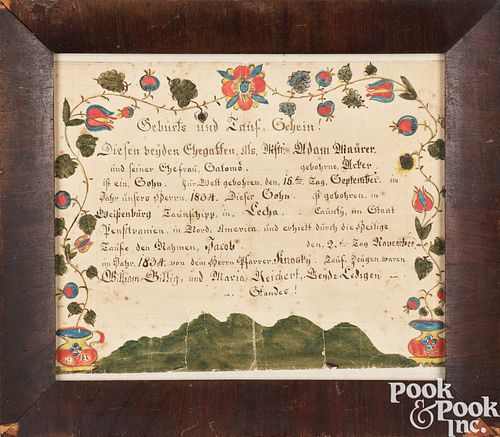 Geburts und Tauf. Schein!
Diesen beyden Ehegatten, Als, Mstr. Adam Maurer,
und seiner Ehefrau, Salomé. gebohrne, Acker.
ist ein, Sohn. Zur Welt gebohren, den, 15.ten Tag, September. im
Jahr unsers Herrn. 1834. Dieser Sohn. ist gebohren, in
Weissenburg Taunschipp, in, Lecha. Caunty, im Staat
Pensilvanien, in Nord, America, und erhielt durch die Heilige
Taufe den Nahmen, Jacob den, 2.ten Tag November
im Jahr, 1834. von dem Herrn Pfarrer, Knosky. Tauf. Zeugen waren
William Billig, und Maria Reichert, Beyde Ledigen
Standes!
POOK
& POOK
INC.